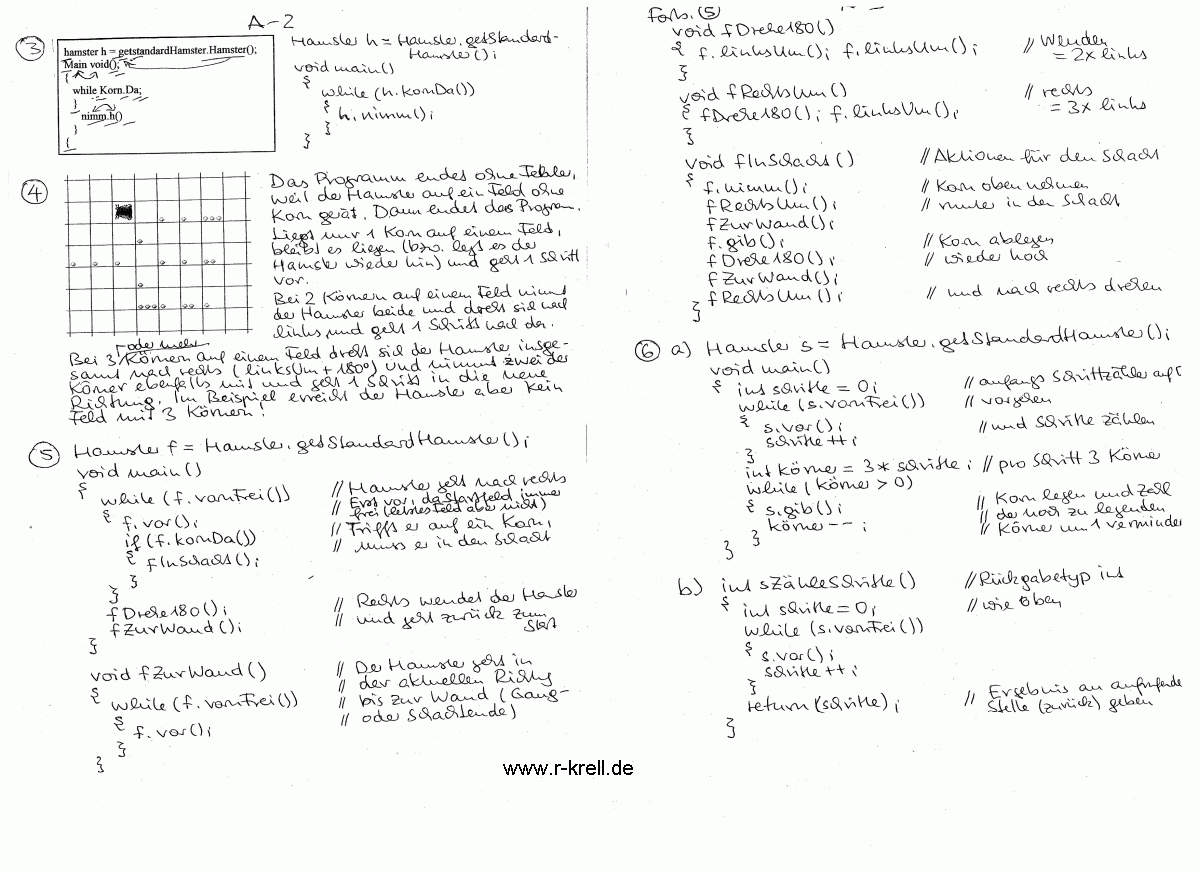 A-2
③
hamster h = getstandardHamster.Hamster();
Main void();
{
while Korn.Da;
}
nimm.h()
}
{
Hamster h = Hamster.getStandard-
Hamster();
void main()
{
while (h.kornDa())
{
h.nimm();
}
}
④
Das Programm endet ohne Fehler,
weil der Hamster auf ein Feld ohne
Korn gerät. Dann endet das Program.
Liegt nur 1 Korn auf einem Feld,
bleibt es liegen (bzw. legt es der
Hamster wieder hin) und geht 1 Schritt
vor.
Bei 2 Körnern auf einem Feld nimmt
der Hamster beide und dreht sich nach
links und geht 1 Schritt nach dor.
oder mehr
Bei 3 Körnern auf einem Feld dreht sich der Hamster insge-
samt nach rechts (linksUm + 180°) und nimmt zwei der
Körner ebenfalls mit und geht 1 Schritt in die neue
Richtung. Im Beispiel erreicht der Hamster aber kein
Feld mit 3 Körnern!
⑤
Hamster f = Hamster.getStandardHamster();
void main()
{
while (f.vornFrei()) // Hamster geht nach rechts
{ // Erst vor, da Startfeld immer
frei (letztes Feld aber nicht)
f.vor(); // Trifft er auf ein Korn,
if (f.kornDa()) // muss er in den Schacht
{ fInSchacht();
}
}
fDrehe180(); // Rechts wendet der Hamster
fZurWand(); // und geht zurück zum
Start
}
void fZurWand() // Der Hamster geht in
{ // der aktuellen Richtg
while (f.vornFrei()) // bis zur Wand (Gang-
{ // oder Schachtende)
f.vor();
}
}
Forts. ⑤
void fDrehe180()
{ f.linksUm(); f.linksUm(); // Wenden
= 2x links
}
void fRechtsUm() // rechts
{ fDrehe180(); f.linksUm(); = 3x links
}
void fInSchacht() // Aktionen für den Schacht
{ f.nimm(); // Korn oben nehmen
fRechtsUm(); // runter in den Schacht
fZurWand();
f.gib(); // Korn ablegen
fDrehe180(); // wieder hoch
fZurWand();
fRechtsUm(); // und nach rechts drehen
}
⑥ a) Hamster s = Hamster.getStandardHamster();
void main()
{ int schritte = 0; // anfangs Schrittzähler auf
while (s.vornFrei()) // vorgehen
{ s.vor(); // und Schritte zählen
schritte++;
}
int körner = 3 * schritte; // pro Schritt 3 Körner
while (körner > 0)
{ s.gib(); // Korn legen und Zahl
körner--; // der noch zu legenden
} // Körner um 1 verminder
}
b) int sZähleSchritte() // Rückgabetyp int
{ int schritte = 0; // wie oben
while (s.vornFrei())
{ s.vor();
schritte++;
}
return (schritte); // Ergebnis an aufrufende
Stelle (zurück) geben
}
www.r-krell.de